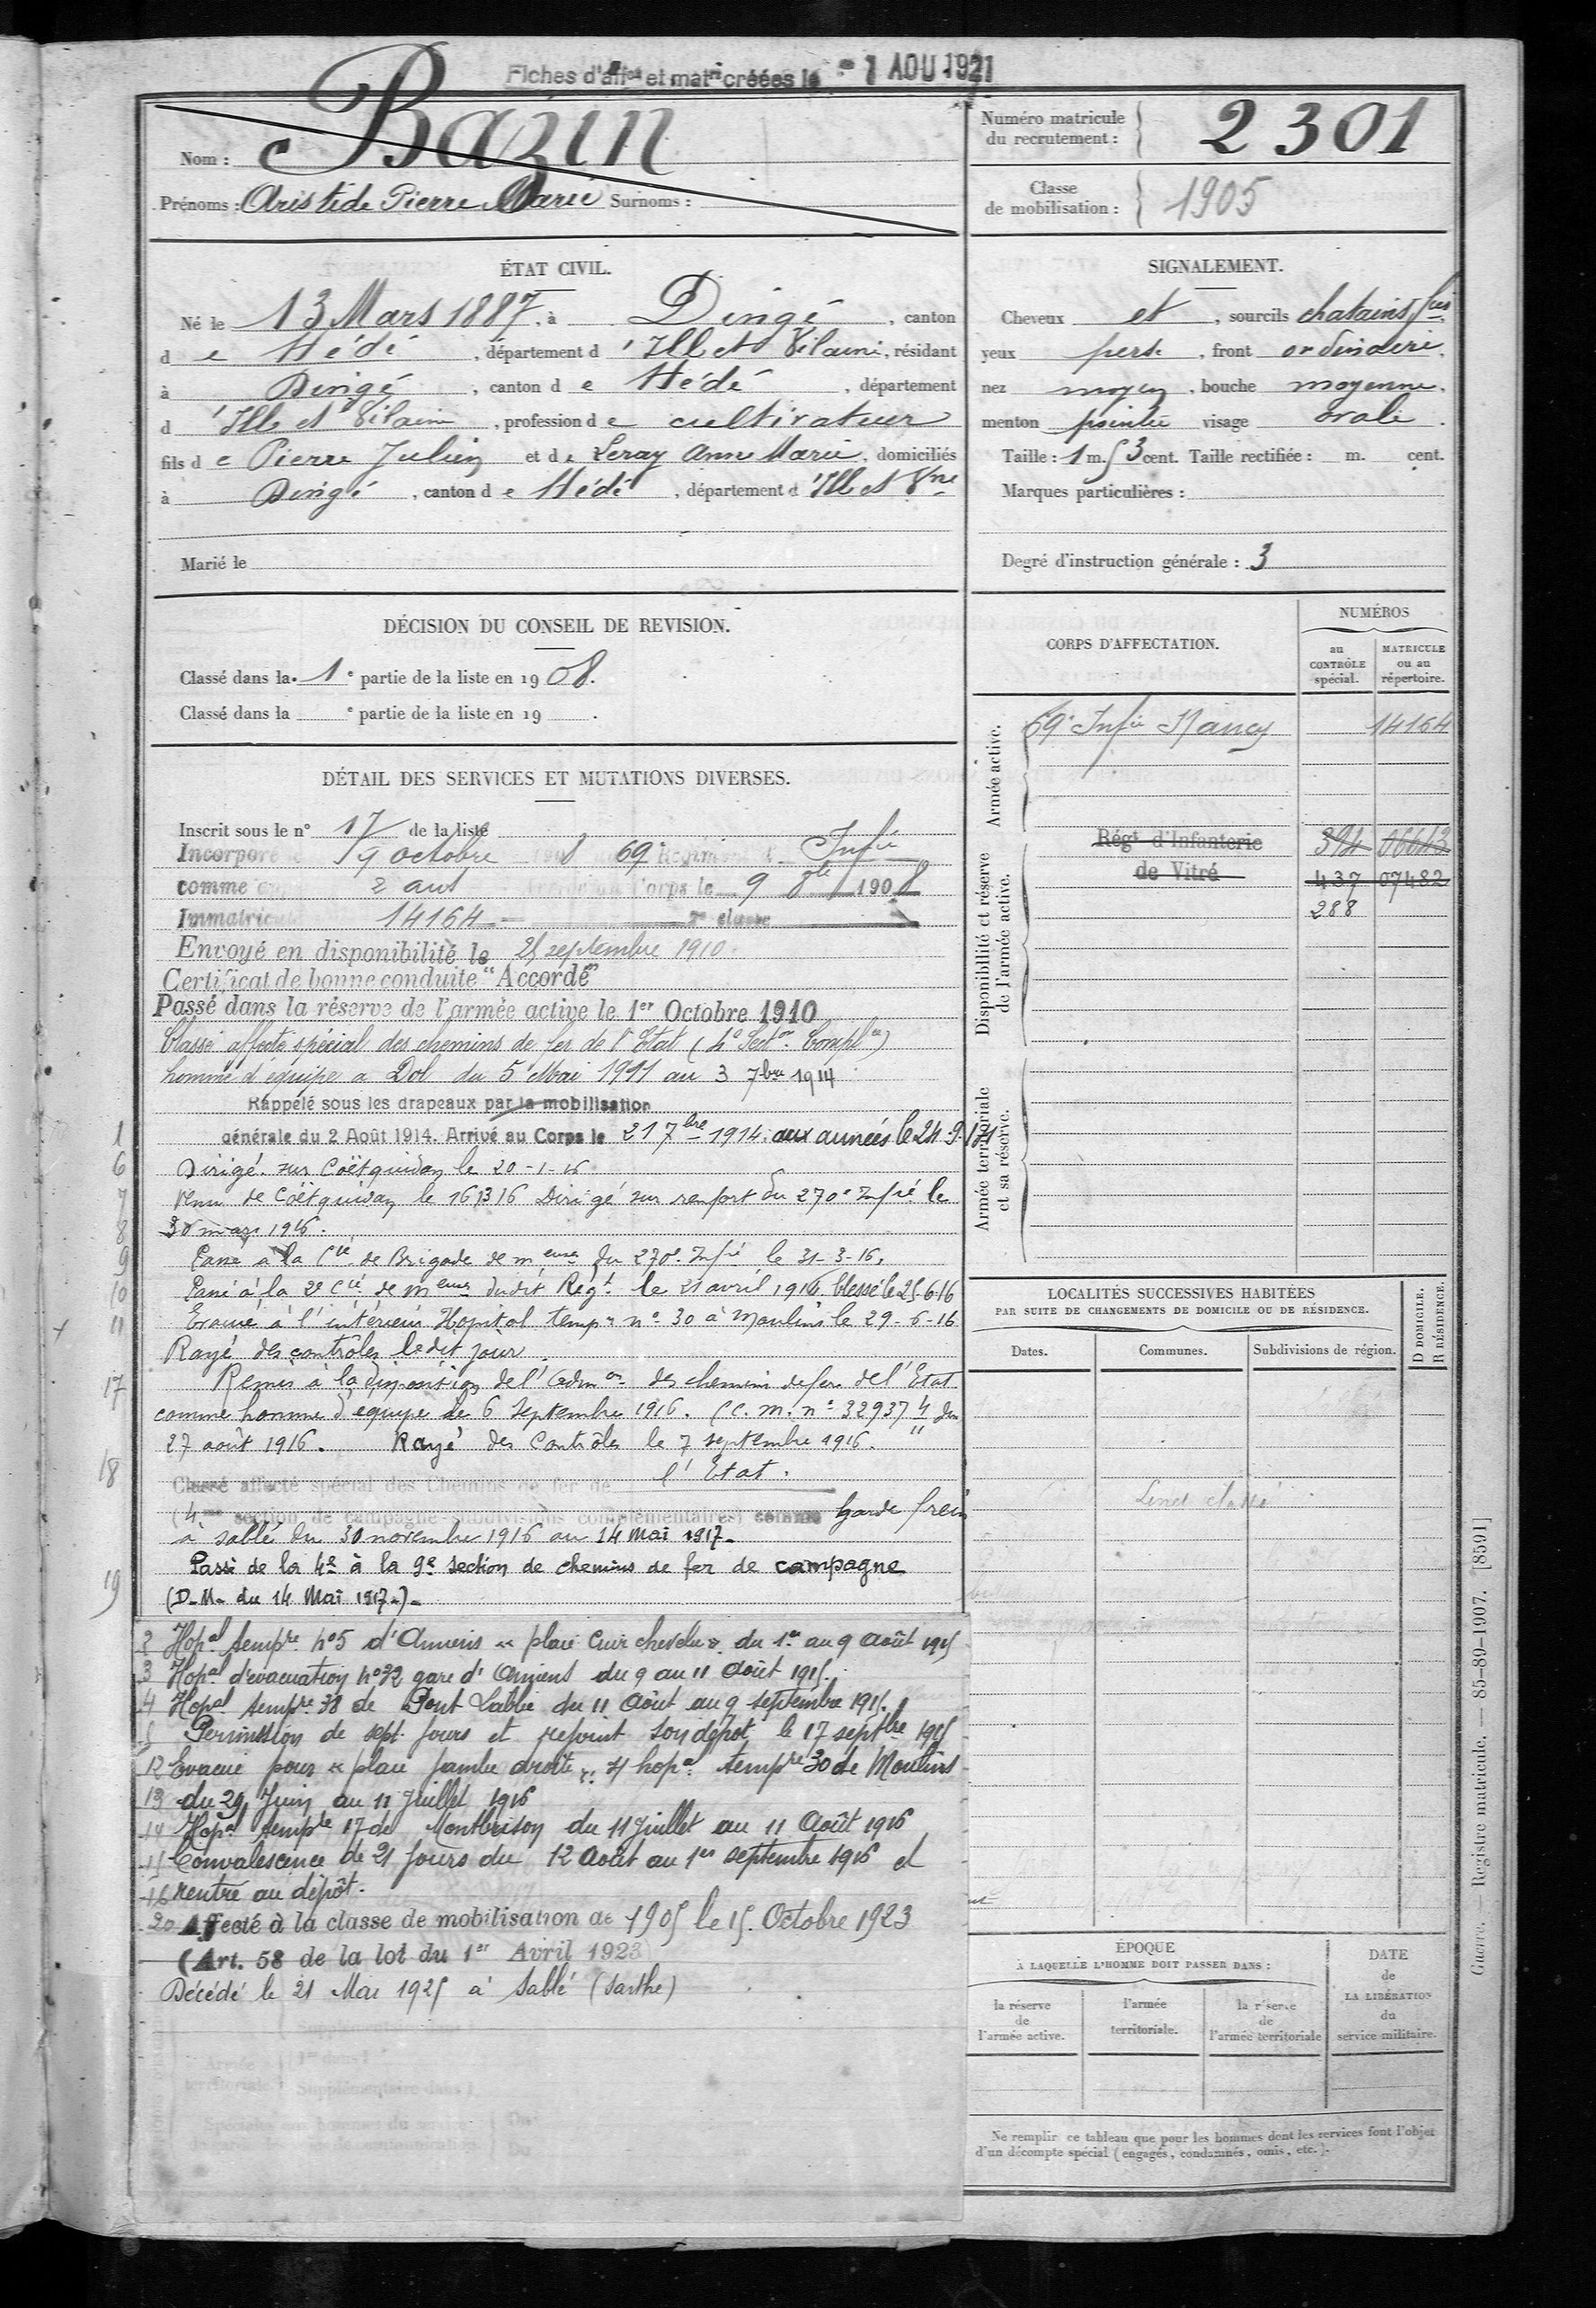 Fiches d'aff^on et mat^ri créées le - 1 AOU 1921
Nom : Bazin
Prénoms : Aristide Pierre Marie Surnoms :
Numéro matricule
du recrutement : 2301
Classe
de mobilisation : 1905
ÉTAT CIVIL.
Né le 13 Mars 1887, à Dingé, canton
d e Hédé, département d 'Ille et Vilaine, résidant
à Dingé, canton d e Hédé, département
d 'Ille et Vilaine, profession d e cultivateur
fils d e Pierre Julien et d e Leray Anne Marie, domiciliés
à Dingé, canton d e Hédé, département d 'Ille et Vne
Marié le
SIGNALEMENT.
Cheveux et, sourcils chatains fcés
yeux pers, front ordinaire,
nez moyen, bouche moyenne,
menton pointu visage ovale.
Taille : 1 m. 53 cent. Taille rectifiée : m. cent.
Marques particulières :
Degré d'instruction générale : 3
DÉCISION DU CONSEIL DE REVISION.
Classé dans la 1e partie de la liste en 1908.
Classé dans la e partie de la liste en 19 .
DÉTAIL DES SERVICES ET MUTATIONS DIVERSES.
Inscrit sous le n° 17 de la liste
Incorporé 9 octobre 8 69e Infie
comme 2 ans Corps le 9 8bre 1908
Immatricul 14164 2e classe
Envoyé en disponibilité le 25 septembre 1910.
Certificat de bonne conduite "Accordé"
Passé dans la réserve de l'armée active le 1er Octobre 1910
Classé affecté spécial des chemins de fer de l'Etat (4e Section Complre)
homme d'équipe a Dol du 5 Mai 1911 au 3 7bre 1914
Rappelé sous les drapeaux par la mobilisation
1 générale du 2 Août 1914. Arrivé au Corps le 21 7bre 1914. aux armées le 24.9.14
6 Dirigé sur Coëtquidan le 20-1-16
7 Venu de Coëtquidan le 16 3 16 Dirigé sur renfort du 270e Infie le
8 30 mars 1916.
9 Passé à la Cie de Brigade de meuses du 270e Infie le 31-3-16.
10 Passé à la 2e Cie de meuses dudit Régt le 21 avril 1916. blessé le 25-6-16
11 Evacué à l'intérieur Hopital tempre n° 30 à Moulins le 29-6-16
Rayé des contrôles ledit jour.
17 Remis à la disposition de l'Admon des chemins de fer de l'Etat
comme homme d'équipe le 6 Septembre 1916. (C. M. n° 32937 4/11 du
27 août 1916. Rayé des Contrôles le 7 septembre 1916.
18 Classé affecté spécial des Chemins de fer de l'Etat.
(4me section de campagne-subdivisions complémentaires) comme Garde frein
à Sablé du 30 novembre 1916 au 14 mai 1917.
19 Passé de la 4e à la 9e section de chemins de fer de campagne
(D-M- du 14 Mai 1917-)-
2 Hopal tempre n°5 d'Amiens « plaie cuir chevelu » du 1er au 9 Août 1915
3 Hopal d'évacuation n°32 gare d'Amiens du 9 au 11 Août 1915.
4 Hopal tempre 38 de Pont Labbe du 11 Août au 9 septembre 1915.
5 Permission de sept jours et rejoint son depot le 17 septbre 1915
12 Evacué pour « plaie jambe droite » hopal tempre 30 de Moulins
13 du 29 Juin au 11 Juillet 1916
14 Hopal tempre 17 de Montbrison du 11 juillet au 11 Août 1916
15 Convalescence de 21 Jours du 12 Août au 1er septembre 1916 et
16 rentré au dépôt.
20 Affecté à la classe de mobilisation de 1905 le 15 Octobre 1923
(Art. 58 de la loi du 1er Avril 1923
Décédé le 21 Mai 1925 à Sablé (Sarthe)
CORPS D'AFFECTATION.
NUMÉROS
au
CONTRÔLE
spécial.
MATRICULE
ou au
répertoire.
Armée active.
69e Infie Nancy 14164
Disponibilité et réserve
de l'armée active.
Régt d'Infanterie 394 06643
de Vitré 437 07482
288
Armée territoriale
et sa réserve.
LOCALITÉS SUCCESSIVES HABITÉES
PAR SUITE DE CHANGEMENTS DE DOMICILE OU DE RÉSIDENCE.
D DOMICILE.
R RÉSIDENCE.
Dates. Communes. Subdivisions de région.
ÉPOQUE
À LAQUELLE L'HOMME DOIT PASSER DANS :
la réserve
de
l'armée active.
l'armée
territoriale.
la réserve
de
l'armée territoriale
DATE
de
LA LIBÉRATION
du
service militaire.
Ne remplir ce tableau que pour les hommes dont les services font l'objet
d'un décompte spécial (engagés, condamnés, omis, etc.).
Guerre. — Registre matricule. — 85-89-1907. [8591]